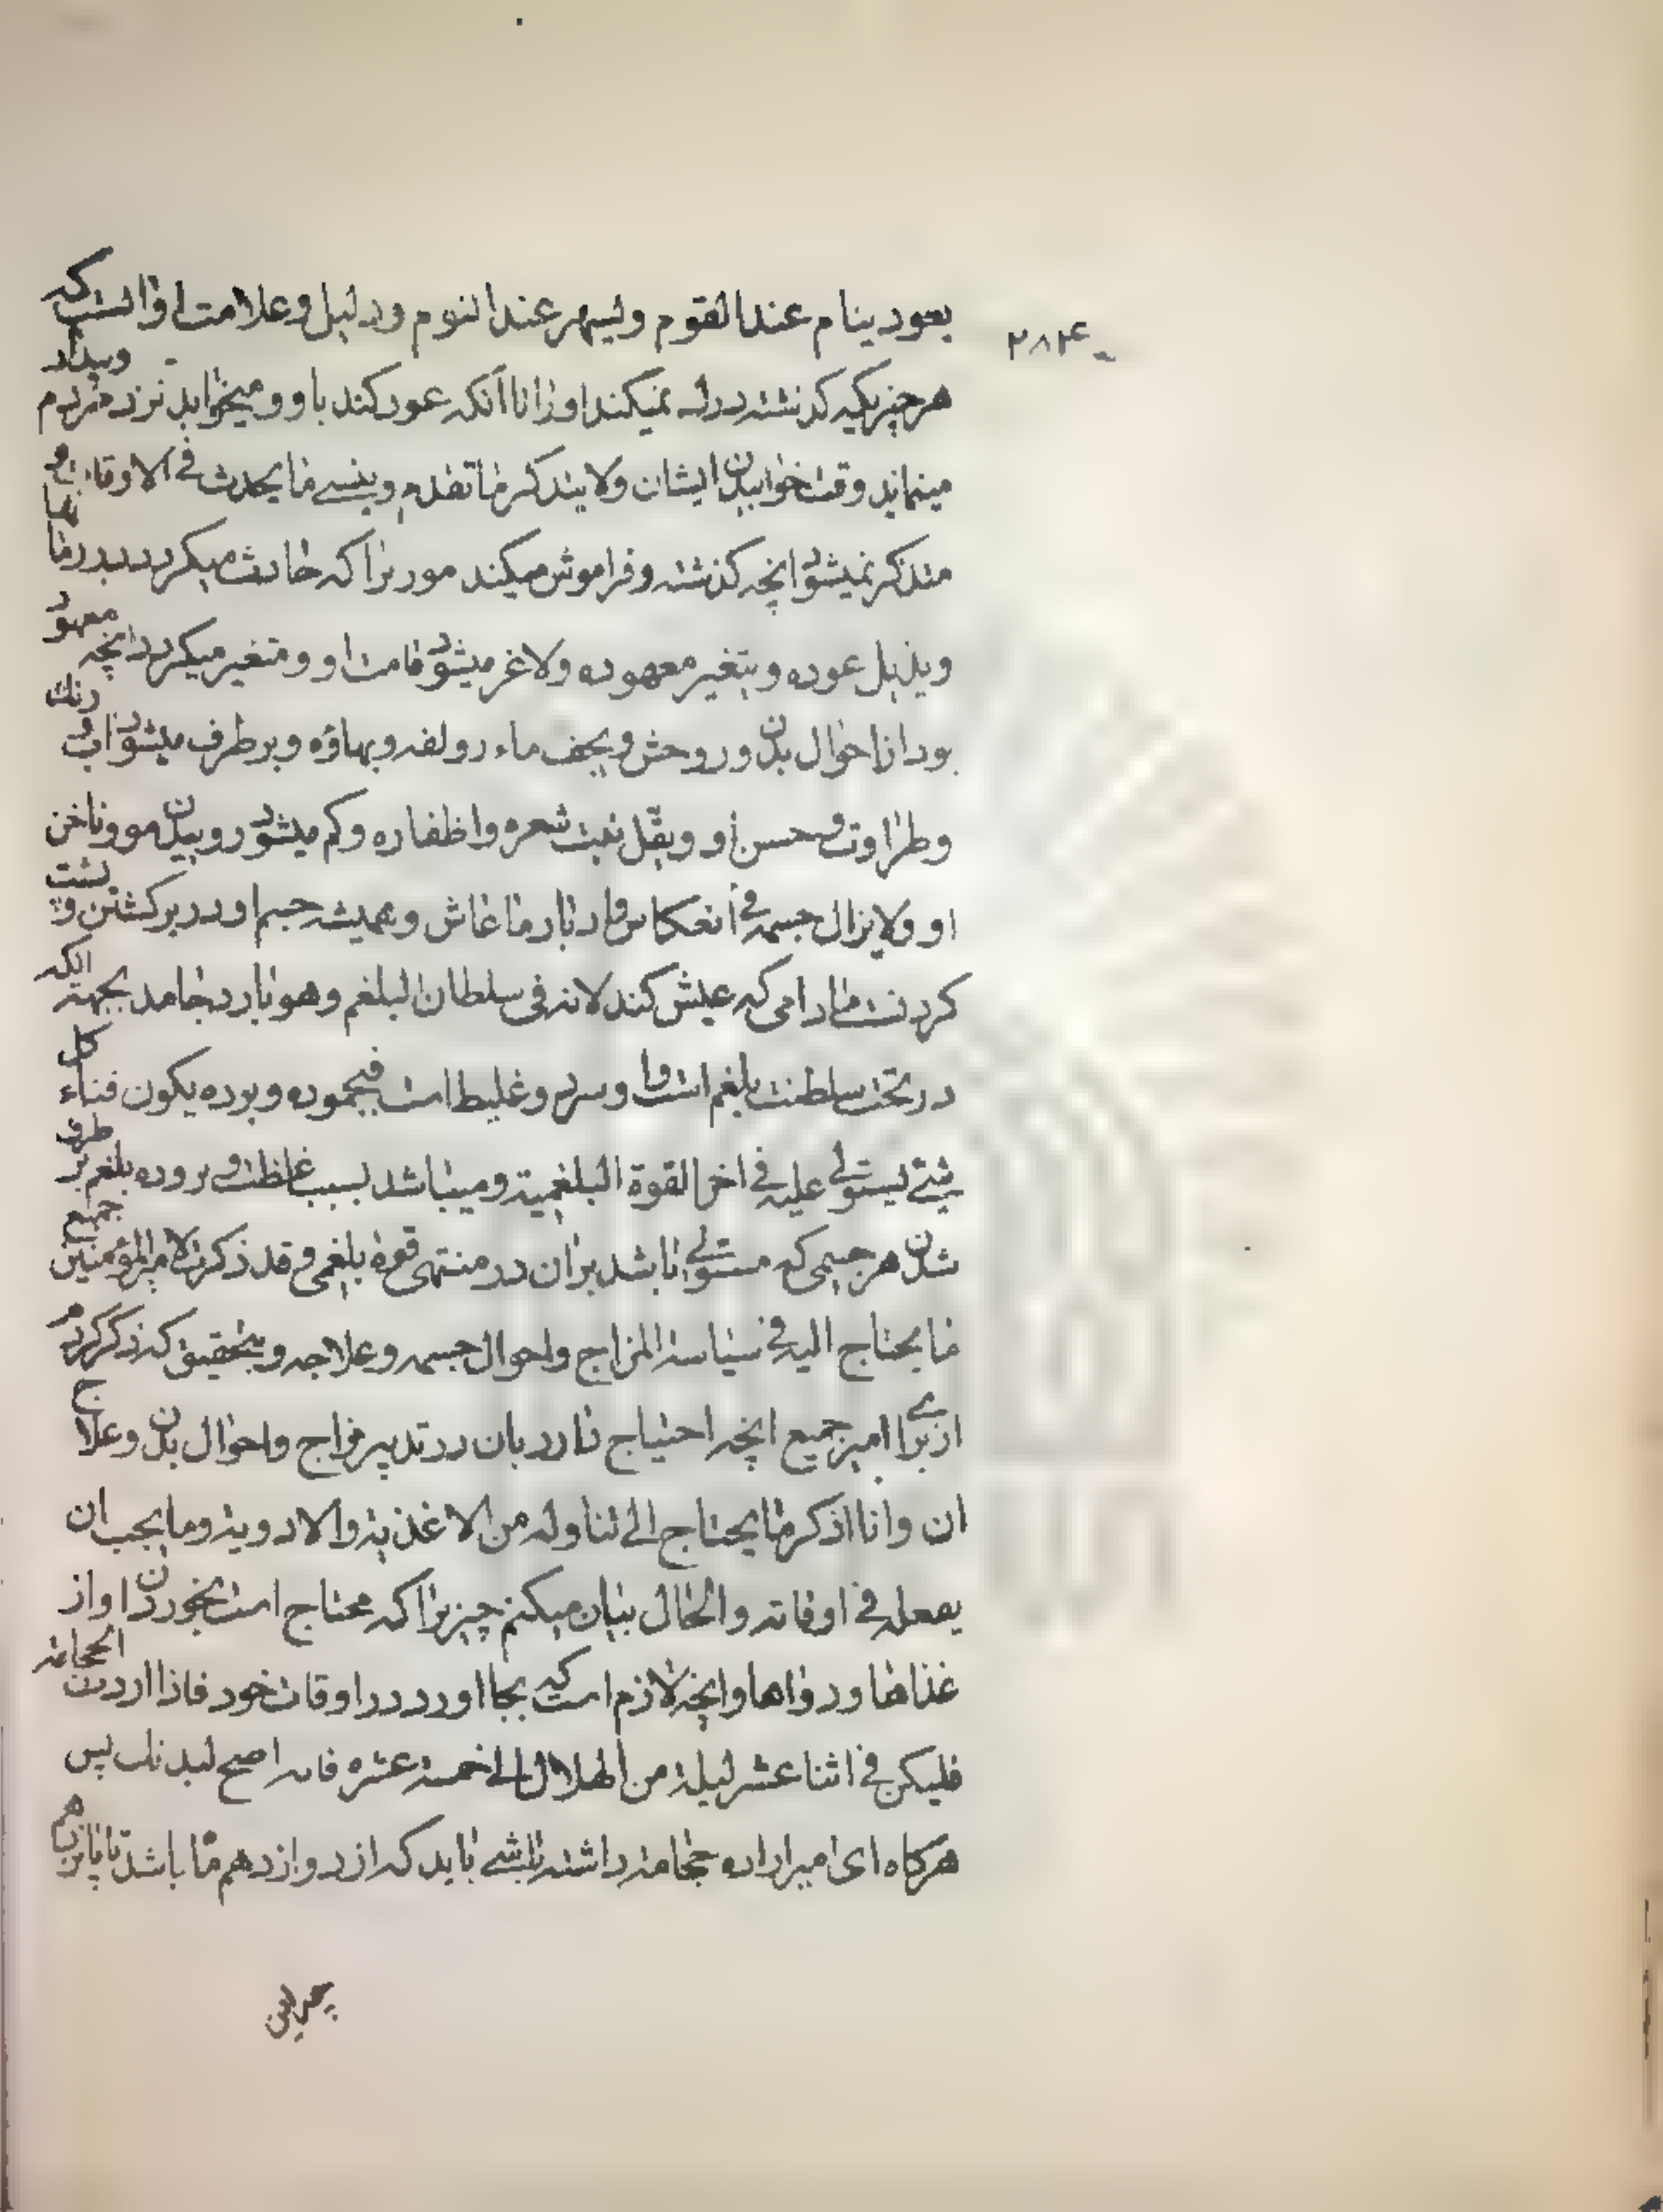 ۲۸۴
یعود ینام عند القوم ویسهر عند النوم ودلیل وعلامت او انست که
هر چیزیکه کذشته درک نمیکند اورا تا آنکه عود کند باو ومیخوابد نزد مردم وبیدار
میماند وقت خوابیدن ایشان ولا یتذکر ما تقدم وینسی ما یحدث فی الاوقات و
متذکر نمیشود انچه کذشته وفراموش میکند موریرا که حادث میکردد در زمانها
ویذبل عوده ویتغیر معهوده ولاغر میشود قامت او ومتغیر میکردد انچه معهود
بود از احوال بدن وروحش ویجف ماء رونقه وبهاؤه وبرطرف میشود آب ورنک
وطراوت وحسن او ویقل نبت شعره واظفاره وکم میشود روییدن مو وناخن
او ولا یزال جسمه فی انعکاس وادبار ما عاش وهمیشه جسم او در برکشتن وپشت
کردنست مادامی که عیش کند لانه فی سلطان البلغم وهو بارد جامد بجهة انکه
در تحت سلطنت بلغم است واو سرد وغلیظ است فبجموده وبرده یکون فناء کل
شئ یستولی علیه فی اخر القوة البلغمیة ومیباشد بسبب غلظت وبروده بلغم برطرف
شدن هر جسمی که مستولی باشد بران در منتهی قوة بلغمی وقد ذکرت لامیر المؤمنین جمیع
ما یحتاج الیه فی سیاسة المزاج واحوال جسمه وعلاجه وبتحقیق که ذکر کردم
از برای امیر جمیع انچه احتیاج دارد بان در تدبیر مزاج واحوال بدن وعلاج
ان وانا اذکر ما یحتاج الی تناوله من الاغذیة والادویة وما یجب ان
یفعله فی اوقاته والحال بیان میکنم چیزیرا که محتاج است بخوردن او از
غذاها ودواها وانچه لازم است که بجا اورد در اوقات خود فاذا اردت الحجامة
فلیکن فی اثنا عشر لیلة من الهلال الی خمسة عشره فانه اصح لبدنک پس
هرکاه ای امیر اراده حجامة داشته باشی باید که از دوازدهم ماه باشد تا پانزدهم